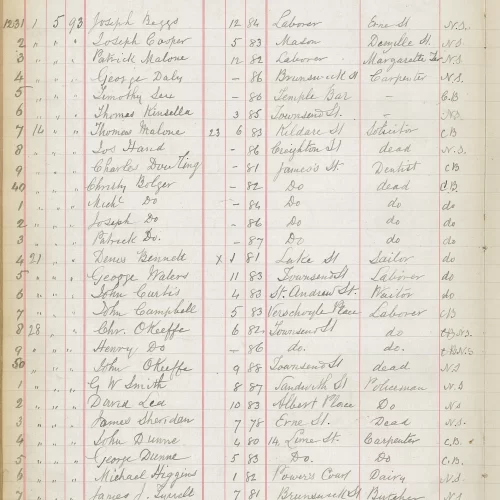 1231 1 5 93 Joseph Beggs 12 84 Laborer Erne St N.S.
2 " " " Joseph Cooper 5 83 Mason Denzille St. N.S.
3 " " " Patrick Malone 12 82 Laborer Margaretta Ter N.S.
4 " " " George Daly - 86 Brunswick St Carpenter N.S.
5 " " " Timothy - 80 Temple Bar C.B
6 " " " Thomas Kinsella 3 85 Townsend St. - N.S.
7 14 " " Thomas Malone 23 6 83 Kildare St Solicitor C.B
8 " " " Jos Hand - 86 Creighton St dead N.S.
9 " " " Charles Dowling - 81 James's St. Dentist C.B
40 " " " Christy Bolger - 82 Do dead C.B.
1 " " " Michl Do - 84 Do do do
2 " " " Joseph Do - 86 Do do do
3 " " " Patrick Do. - 87 Do do do
4 21 " " Denis Bennett x 1 81 Luke St Sailor do
5 " " " George Waters 11 83 Townsend St Laborer do
6 " " " John Curtis 4 80 St. Andrew St. Waiter do
7 " " " John Campbell 5 83 Verschoyle Place Laborer C.B
8 28 " " Chr. OKeeffe 6 82 Townsend St do
9 " " " Henry Do - 86 do. do.
50 " " " John OKeeffe 9 88 Townsend St dead N.S
1 " " " G W Smith 8 87 Sandwith St Policeman N.S
2 " " " David Lea 10 83 Albert Place Do N.S
3 " " " James Sheridan 7 78 Erne St. Dead N.S.
4 " " " John Dunne 4 80 14, Lime St. Carpenter C.B.
5 " " " George Dunne 5 83 Do. Do C.B.
6 " " " Michael Higgins 1 82 Power's Court Dairy N.S.
7 " " " James J. Tyrrell 7 81 Brunswick St Butcher N.S